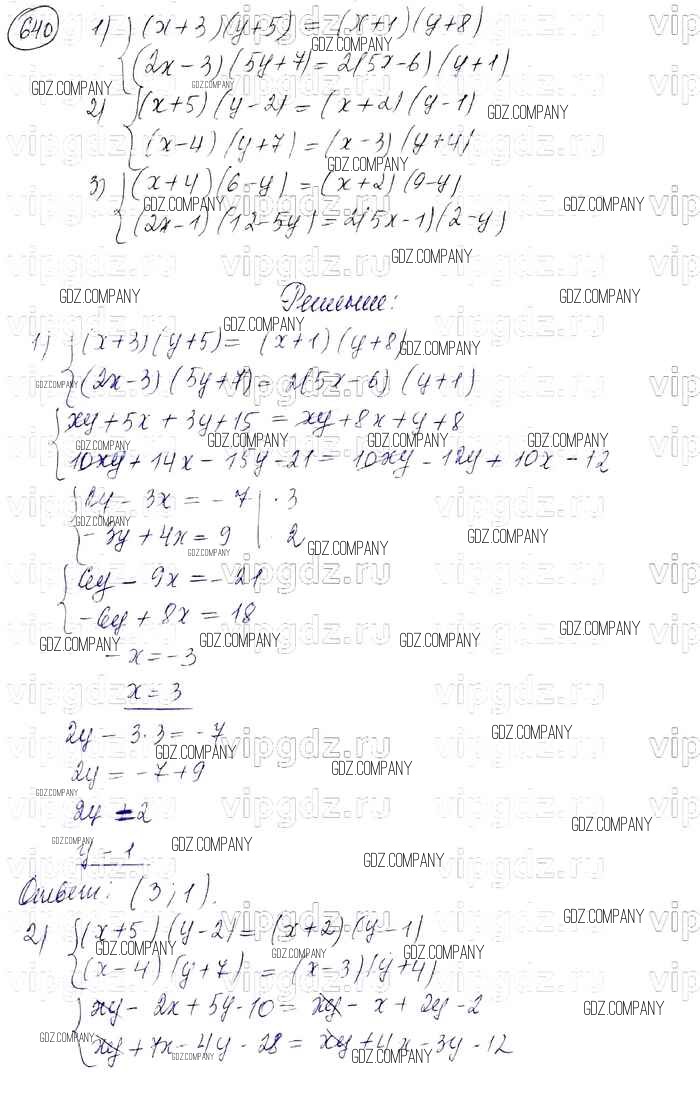 640 1) { (x+3)(y+5) = (x+1)(y+8)
(2x-3)(5y+7) = 2(5x-6)(y+1)
2) { (x+5)(y-2) = (x+2)(y-1)
(x-4)(y+7) = (x-3)(y+4)
3) { (x+4)(6-y) = (x+2)(9-y)
(2x-1)(12-5y) = 2(5x-1)(2-y)
Решение:
1) { (x+3)(y+5) = (x+1)(y+8)
(2x-3)(5y+7) = 2(5x-6)(y+1)
{ xy + 5x + 3y + 15 = xy + 8x + y + 8
10xy + 14x - 15y - 21 = 10xy - 12y + 10x - 12
{ 2y - 3x = -7 | · 3
-3y + 4x = 9 | · 2
{ 6y - 9x = -21
-6y + 8x = 18
-x = -3
x = 3
2y - 3·3 = -7
2y = -7 + 9
2y = 2
y = 1
Ответ: (3; 1).
2) { (x+5)(y-2) = (x+2)(y-1)
(x-4)(y+7) = (x-3)(y+4)
{ xy - 2x + 5y - 10 = xy - x + 2y - 2
xy + 7x - 4y - 28 = xy + 4x - 3y - 12
vipgdz.ru
GDZ.COMPANY